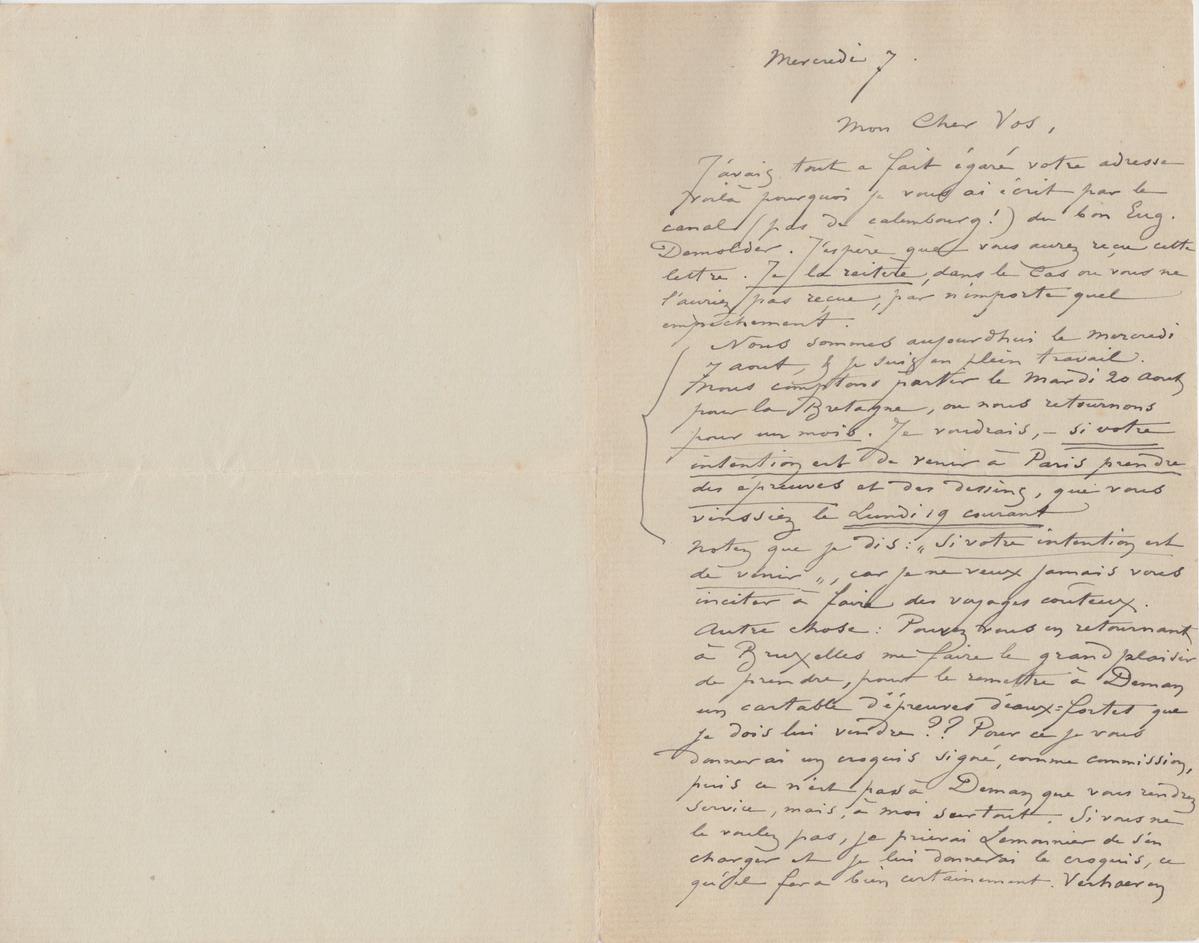 Mercredi 7.
Mon Cher Vos,
J'avais tout a fait égaré votre adresse
voilà pourquoi je vous ai écrit par le
canal (pas de calembourg!) du bon Eug.
Demolder. J'espère que vous aurez reçu cette
lettre. Je la reitère, dans le cas ou vous ne
l'auriez pas reçue, par n'importe quel
empêchement.
Nous sommes aujourdhui le mercredi
7 aout, & je suis en plein travail.
Nous comptons partir le Mardi 20 aout
pour la Bretagne, ou nous retournons
pour un mois. Je voudrais, – si votre
intention est de venir à Paris prendre
des épreuves et des dessins, que vous
vinssiez le Lundi 19 courant
Notez que je dis: „ Si votre intention est
de venir „, car je ne veux jamais vous
inciter à faire des voyages couteux.
Autre chose: Pouvez vous en retournant
à Bruxelles me faire le grand plaisir
de prendre, pour le remettre à Deman
un cartable d'épreuves d'eaux=fortes que
je dois lui vendre?? Pour ce je vous
donnerai un croquis signé, comme commission,
puis ce n'est pas à Deman que vous rendrez
service, mais, à moi surtout. Si vous ne
le voulez pas, je prierai Lemonnier de s'en
charger et je lui donnerai le croquis, ce
qu'il fera bien certainement. Verhaeren